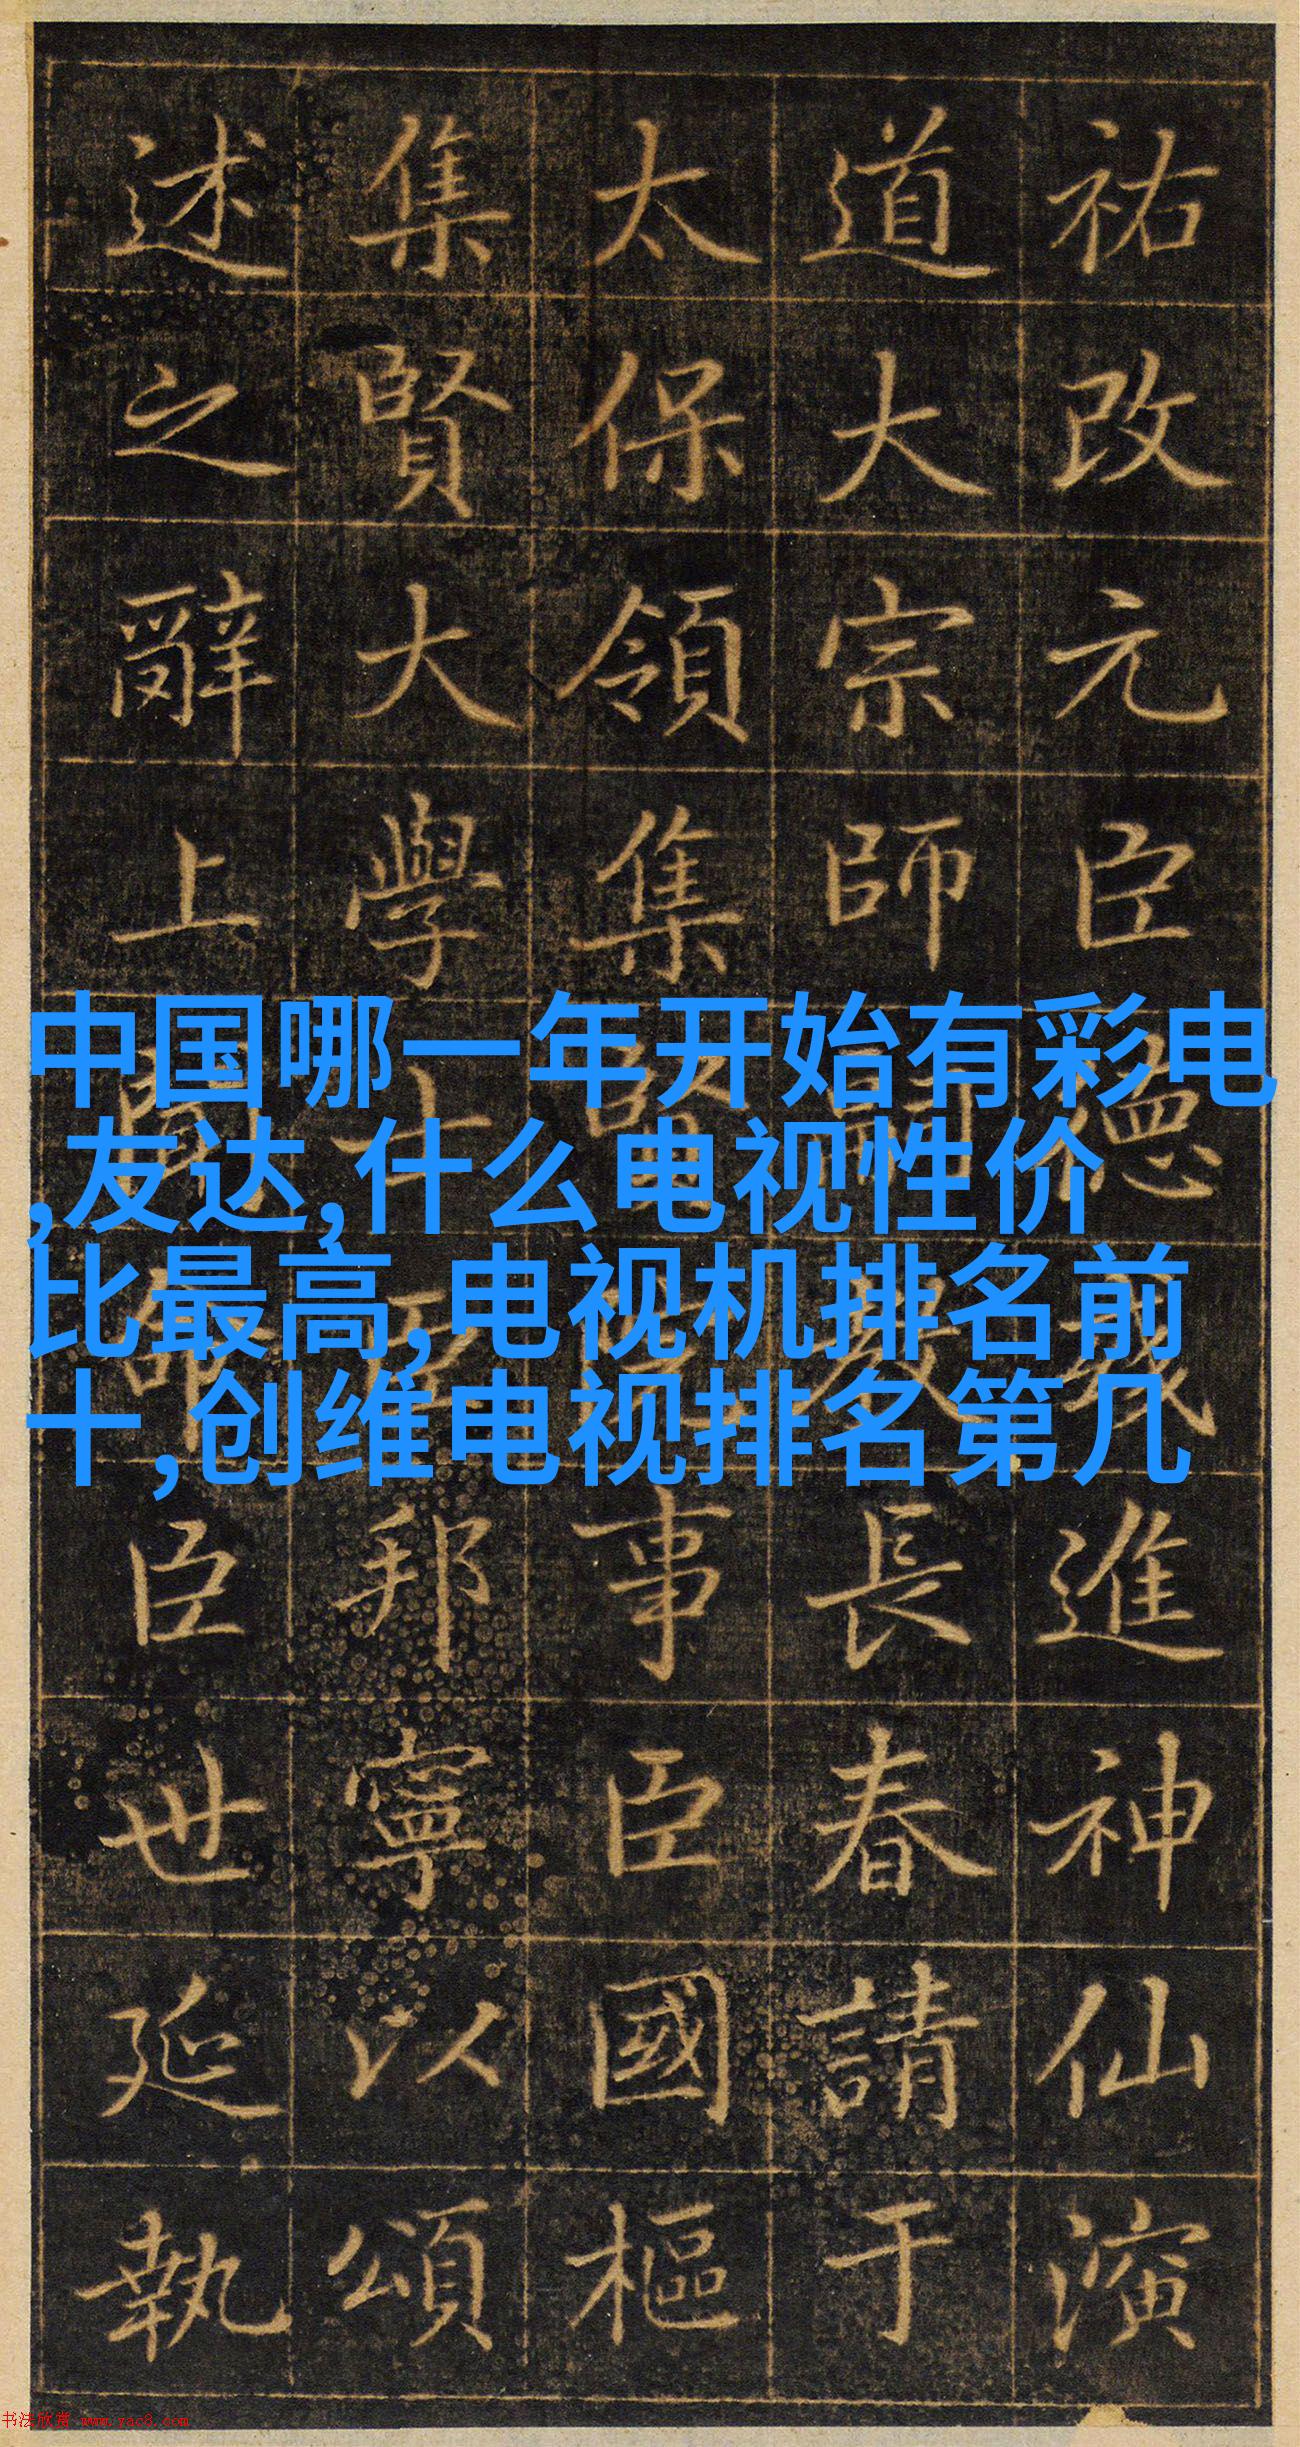 中国哪一年开始有彩电
,友达,什么电视性价
比最高,电视机排名前
十,创维电视排名第几
祐改元臣德進神仙演
道大宗師嗣教長春請于
太保領集賢院事臣國樞
集賢大學士臣邦寧以頌
述之辭上聞臣世延執
书法欣赏 www.yac8.com